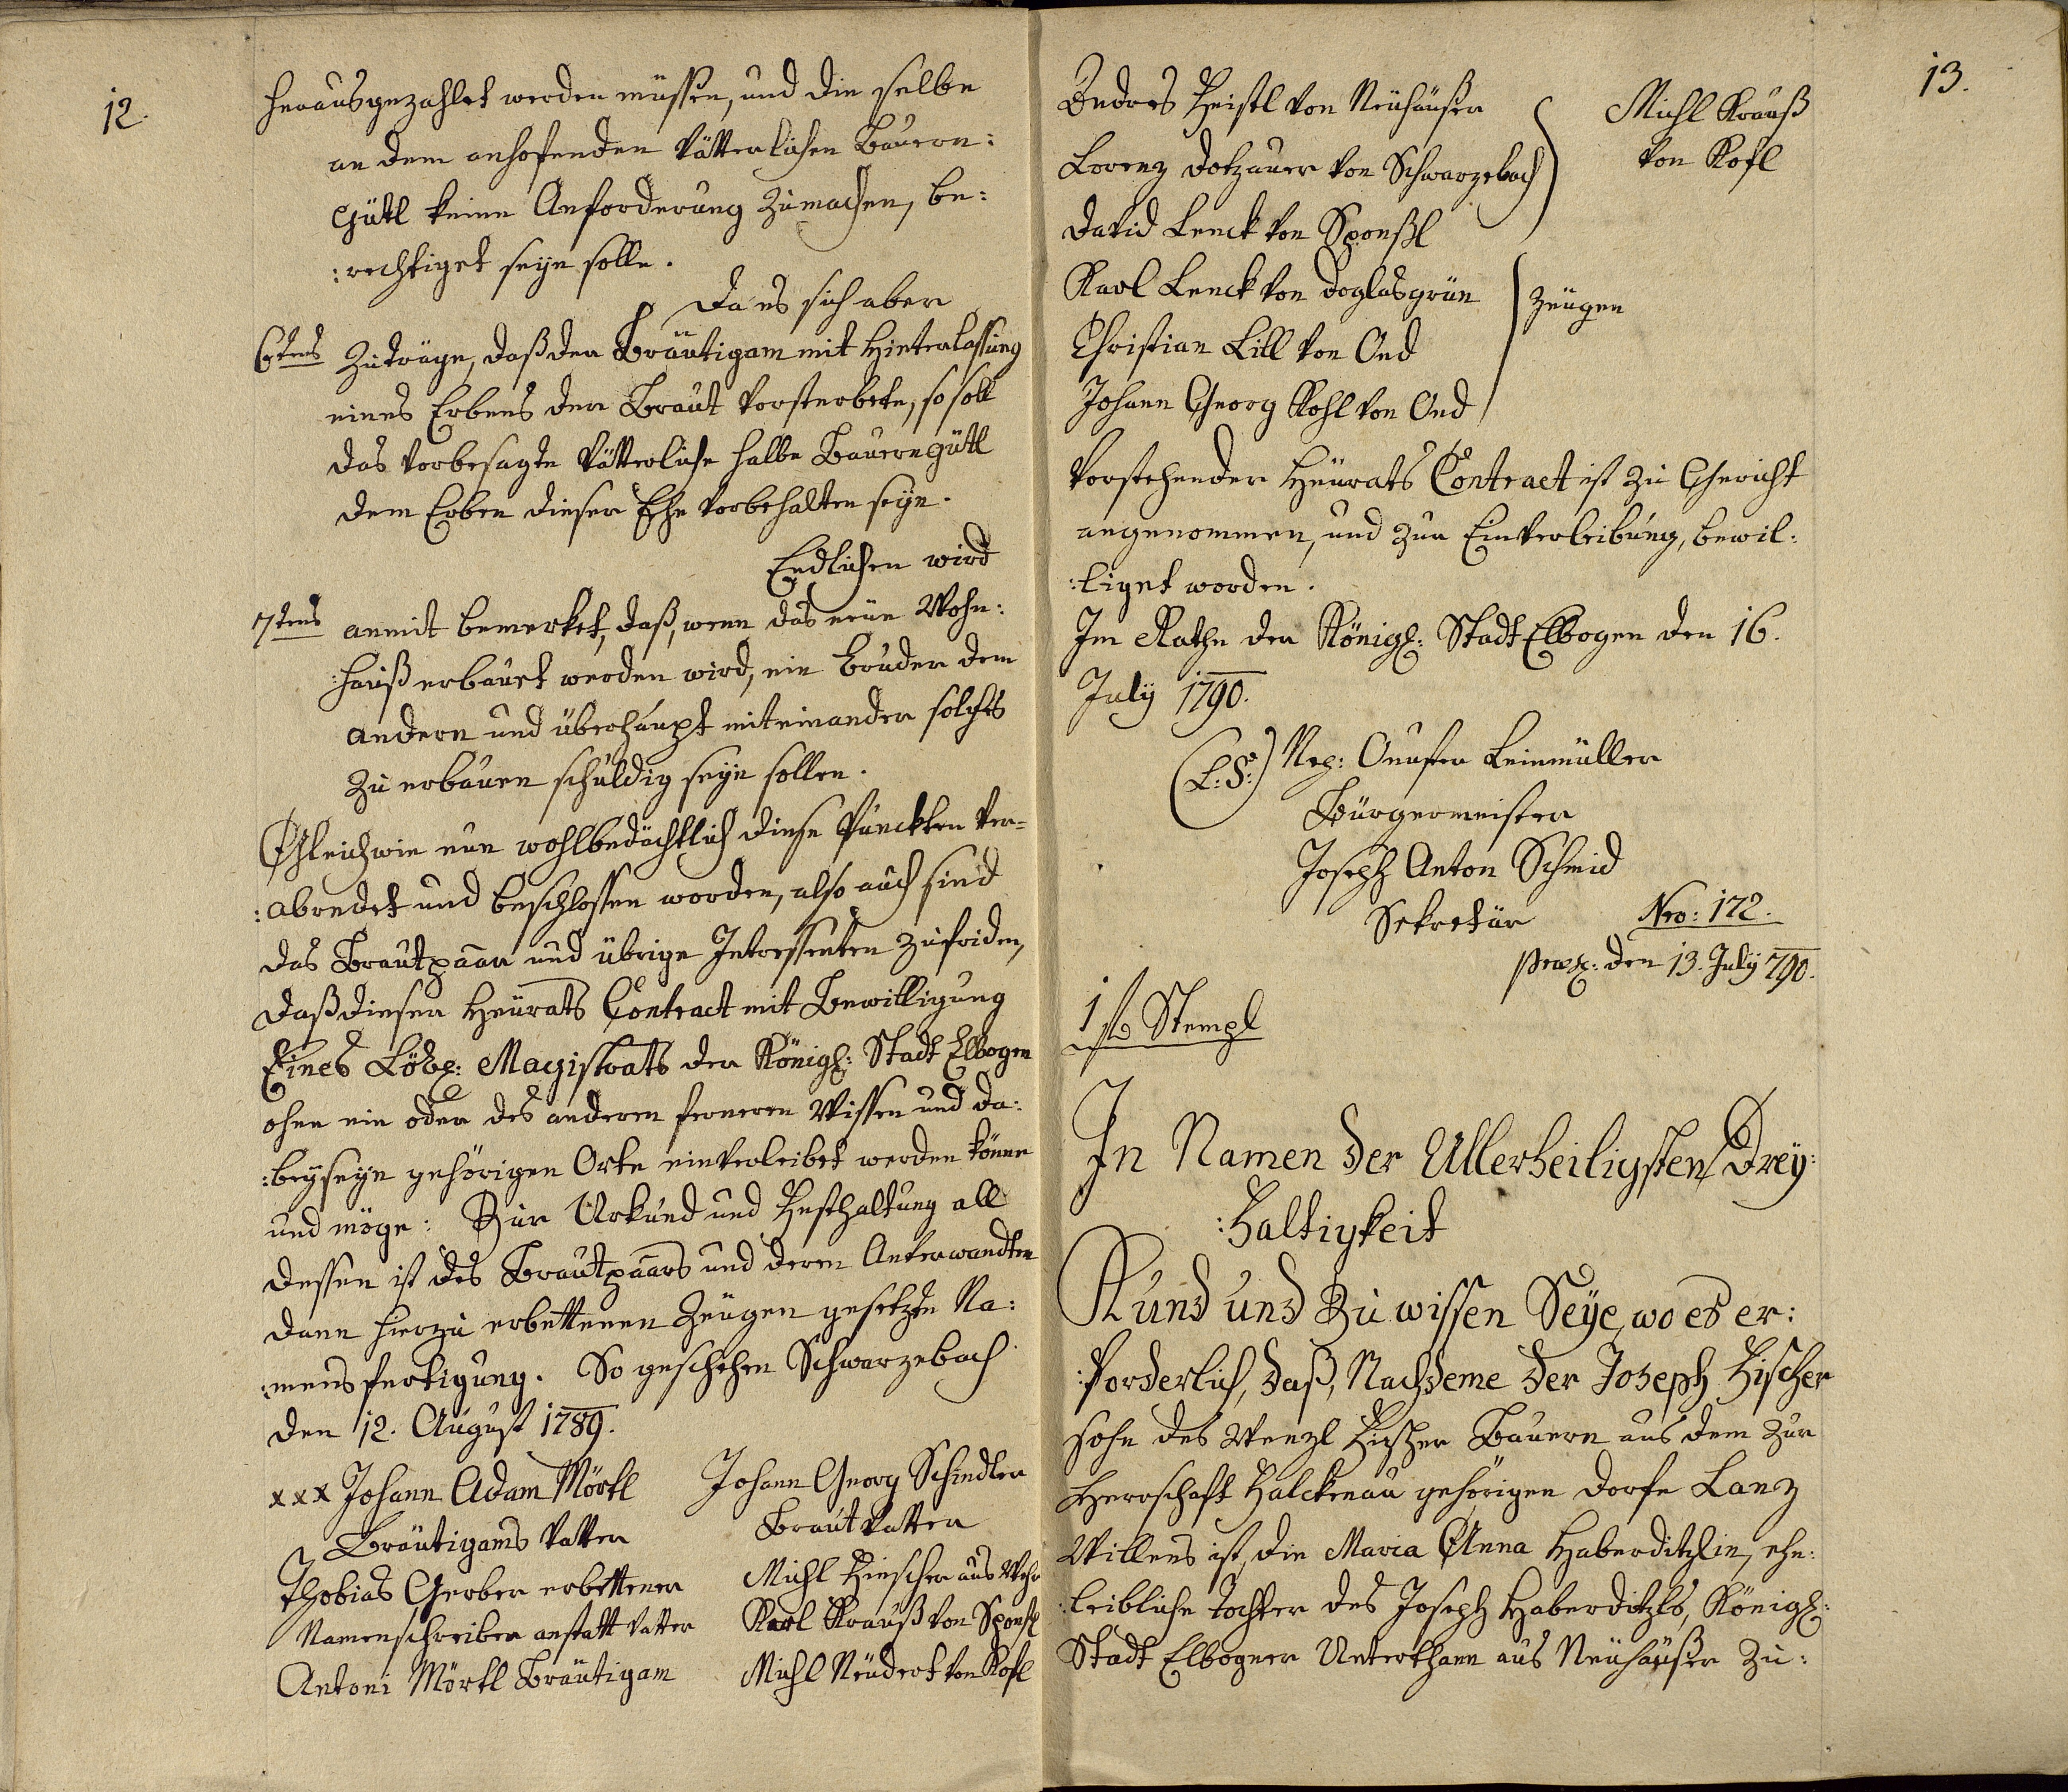 12.
herausgezahlet werden müssen, und die selbe
an dem anhofenden vätterlichen Bauern:
Gütl keine Anforderung zumachen, be:
:rechtiget seÿn solle.
Da es sich aber
6tens Zuträge, daß der Bräutigam mit Hinterlassung
eines Erbens der Braut vorsterbete, so soll
das vorbesagte vätterliche halbe Bauerngütl
dem Erben dieser Ehe vorbehalten seÿn.
Endlichen wird
7tens anmit bemerket, daß, wenn das neüe Wohn:
:hauß erbauet werden wird, ein Bruder dem
andern und überhaupt miteinander solches
zu erbauen schuldig seÿn sollen.
Gleichwie nun wohlbedächtlich diese Punckten ver=
:abredet und beschlossen worden, also auch sind
das Brautpaar und übrige Interessenten zufriden,
daß dieser Heürats Contract mit Bewilligung
Eines Löbl: Magistrats der Königl: Stadt Elbogen
ohne ein oder des anderen ferneren Wissen und da:
:beÿseÿn gehörigen Orte einverleibet werden könne
und möge: Zur Urkund und Festhaltung all
dessen ist des Brautpaars und deren Anverwandten
dann hierzu erbettenen Zeügen gesetzte Na:
:mensfertigung. So geschehen Schwarzebach
den 12. August 1789.
xxx Johann Adam Mörtl
Bräutigams Vatter
Thobias Gerber erbettener
Namenschreiber anstatt Vatter
Antoni Mörtl Bräutigam
Johann Georg Schindler
Braut Vatter
Michl Hirscher aus Wehr
Karl Krauß von Sponsl
Michl Neüdert von Kosl
13.
Endres Heistl von Neühäußer
Lorenz Dotzauer von Schwarzebach
David Lenck von Sponßl
Michl Krauß
von Kosl
Karl Lenck von Doglasgrün
Christian Lill von Oed
Johann Georg Kohl von Oed
Zeügen
Vorstehender Heürats Contract ist zu Gericht
angenommen, und zur Einverleibung, bewil:
:liget worden.
Im Rathe der Königl: Stadt Elbogen den 16.
Julÿ 1790.
(L: S:) Nep: Onufer Leinmüller
Bürgermeister
Joseph Anton Schmid
Sekretär
Nro: 172.
præs: den 13. Julÿ 790.
1 fr Stempl
In Namen der Allerheiligsten Dreÿ:
:faltigkeit
Kund und Zu wissen Seÿe, wo es er:
:forderlich, daß, Nachdeme der Joseph Fischer
Sohn des Wenzl Fischer Bauern aus dem zur
Herrschaft Falckenau gehörigen Dorfe Lanz
Willens ist, die Maria Anna Haberditzlin, ehe:
:leibliche Tochter des Joseph Haberditzls, Königl:
Stadt Elbogner Unterthann aus Neühäußer zu: